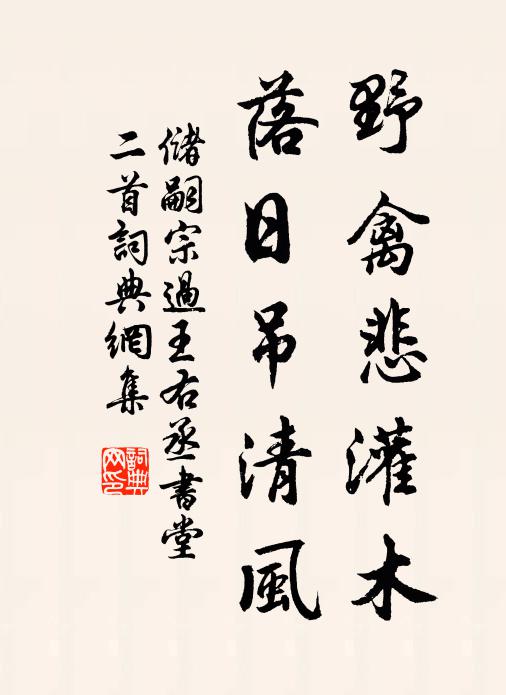 野禽悲灌木
落日吊清風
儲嗣宗過王右丞書堂
二首詞典網集
詞典网印